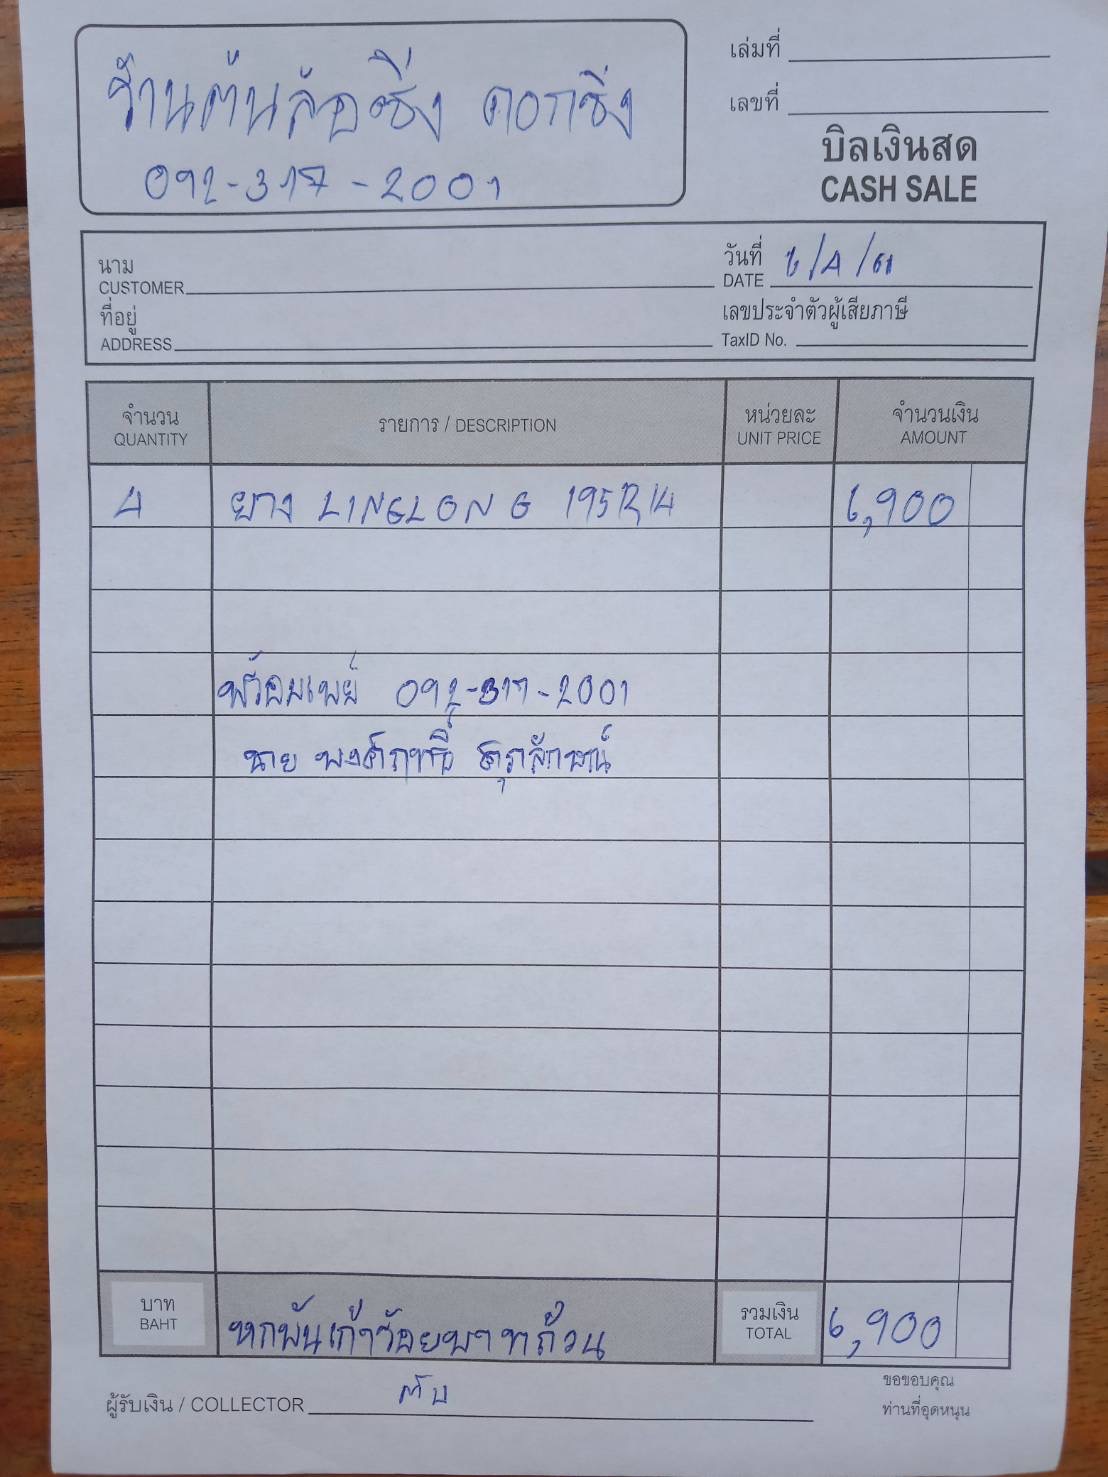 ร้านต้นล้อซิ่ง ดอกซิ่ง
092-317-2001
เล่มที่
เลขที่
บิลเงินสด
CASH SALE
นาม
CUSTOMER
วันที่ 6/4/61
DATE
ที่อยู่
ADDRESS
เลขประจำตัวผู้เสียภาษี
TaxID No.
จำนวน รายการ / DESCRIPTION หน่วยละ จำนวนเงิน
QUANTITY UNIT PRICE AMOUNT
4 ยาง LINGLONG 195R14 6,900
พร้อมเพย์ 092-317-2001
นาย
บาท
BAHT
หกพันเก้าร้อยบาทถ้วน
รวมเงิน
TOTAL
6,900
ผู้รับเงิน / COLLECTOR
ขอขอบคุณ
ท่านที่อุดหนุน